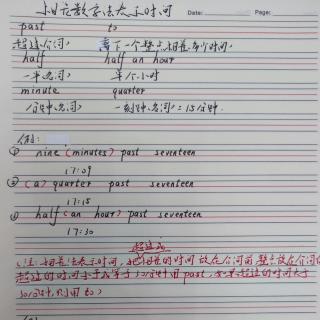 相差数字法表示时间
Date: Page:
past to
超过(介词) 离下一个整点相差多少时间
half half an hour
一半(名词) 半个小时
minute quarter
分钟(名词) 一刻钟(名词)=15分钟.
例:
① nine (minutes) past seventeen
17:09
② (a) quarter past seventeen
17:15
③ half (an hour) past seventeen
17:30
超过
(注:相差法表示时间,把相差的时间放在介词前,整点放在介词后
超过的时间小于或等于30分钟用past,如果超过的时间大于
30分钟,则用to)